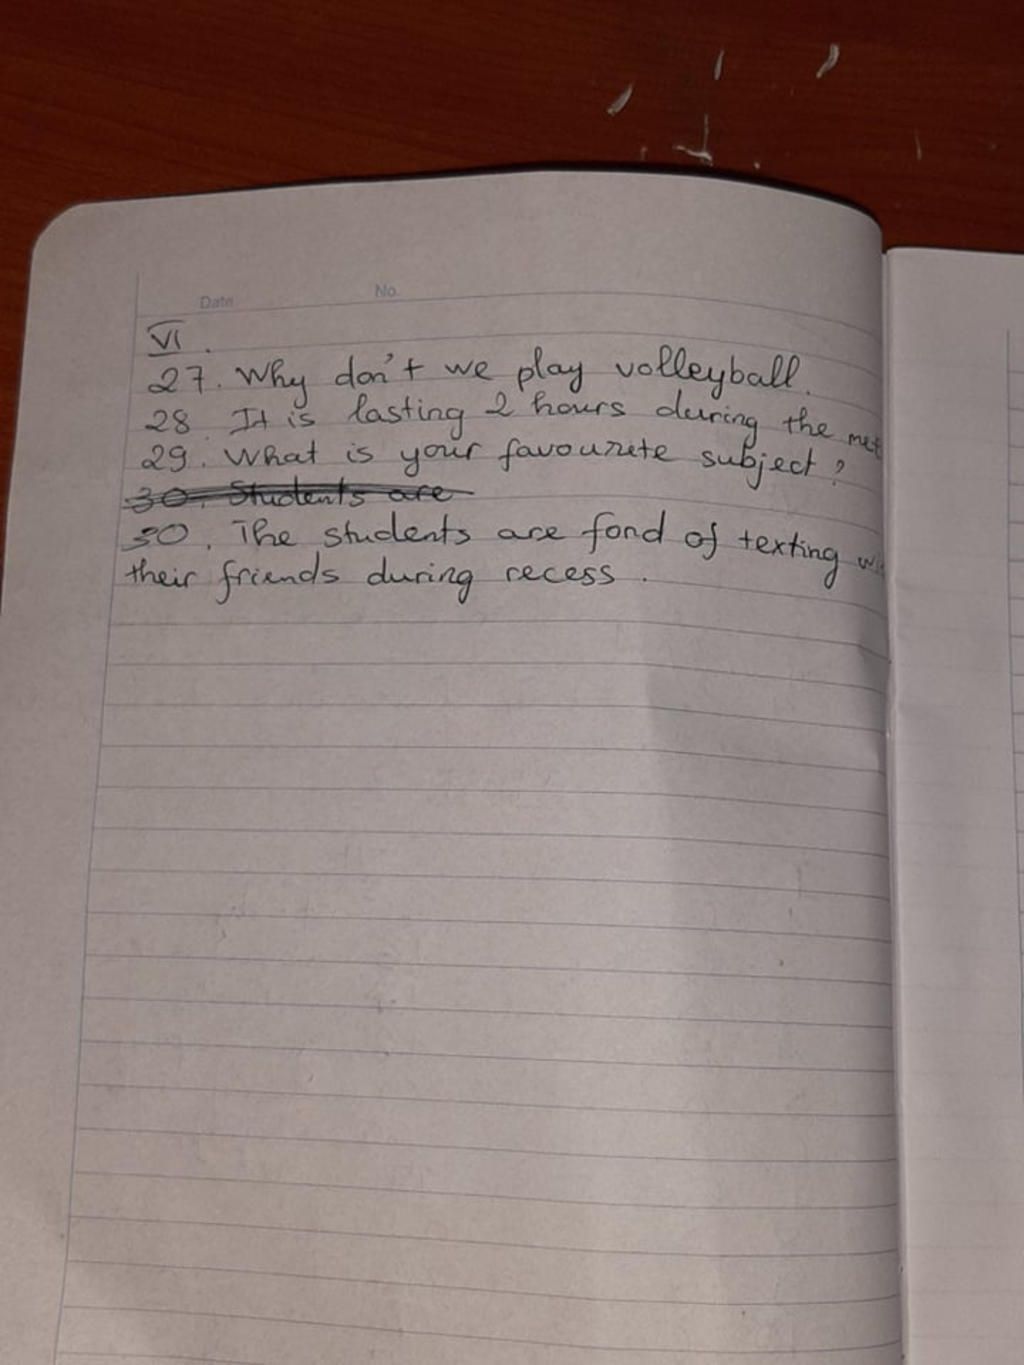 Date No.
VI.
27. Why don't we play volleyball.
28. It is lasting 2 hours during the
29. What is your favourite subject?
30. Students are
30. The students are fond of texting
their friends during recess.